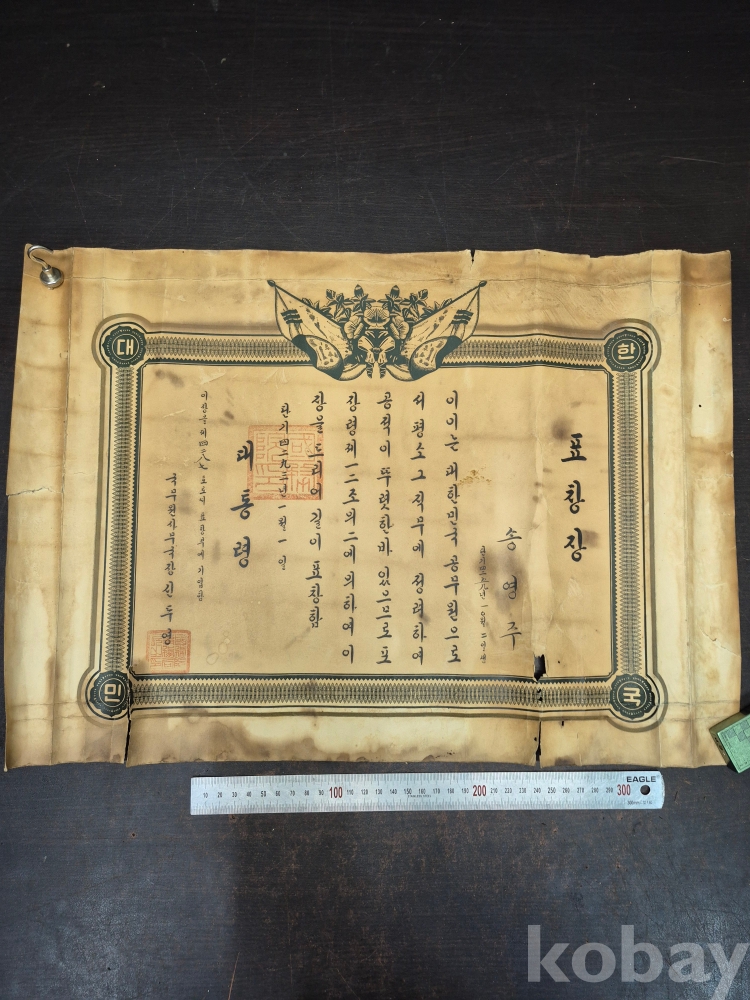 한
대
국
민
표창장
송영주
단기四二五九년 一0월 二일생
이이는 대한민국 공무원으로
서 평소 그 직무에 정려하여
공적이 뚜렷한바 있으므로 표
장령제一二조의 二에 의하여 이
장을 드리어 길이 표창함
단기四二九三년 一월 一일
대통령
이 장을 제
호로써 표창부에 기입함
국무원사무국장 신두영
EAGLE
10 20 30 40 50 60 70 80 90 100 110 120 130 140 150 160 170 180 190 200 210 220 230 240 250 260 270 280 290 300
STAINLESS
kobay